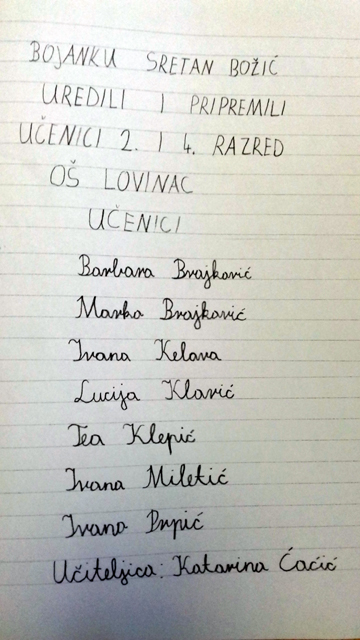 BOJANKU SRETAN BOŽIĆ
UREDILI I PRIPREMILI
UČENICI 2. I 4. RAZRED
OŠ LOVINAC
UČENICI
Barbara Brajković
Marko Brajković
Ivana Kelava
Lucija Klarić
Tea Klepić
Ivana Miletić
Ivano Prpić
Učiteljica: Katarina Ćaćić